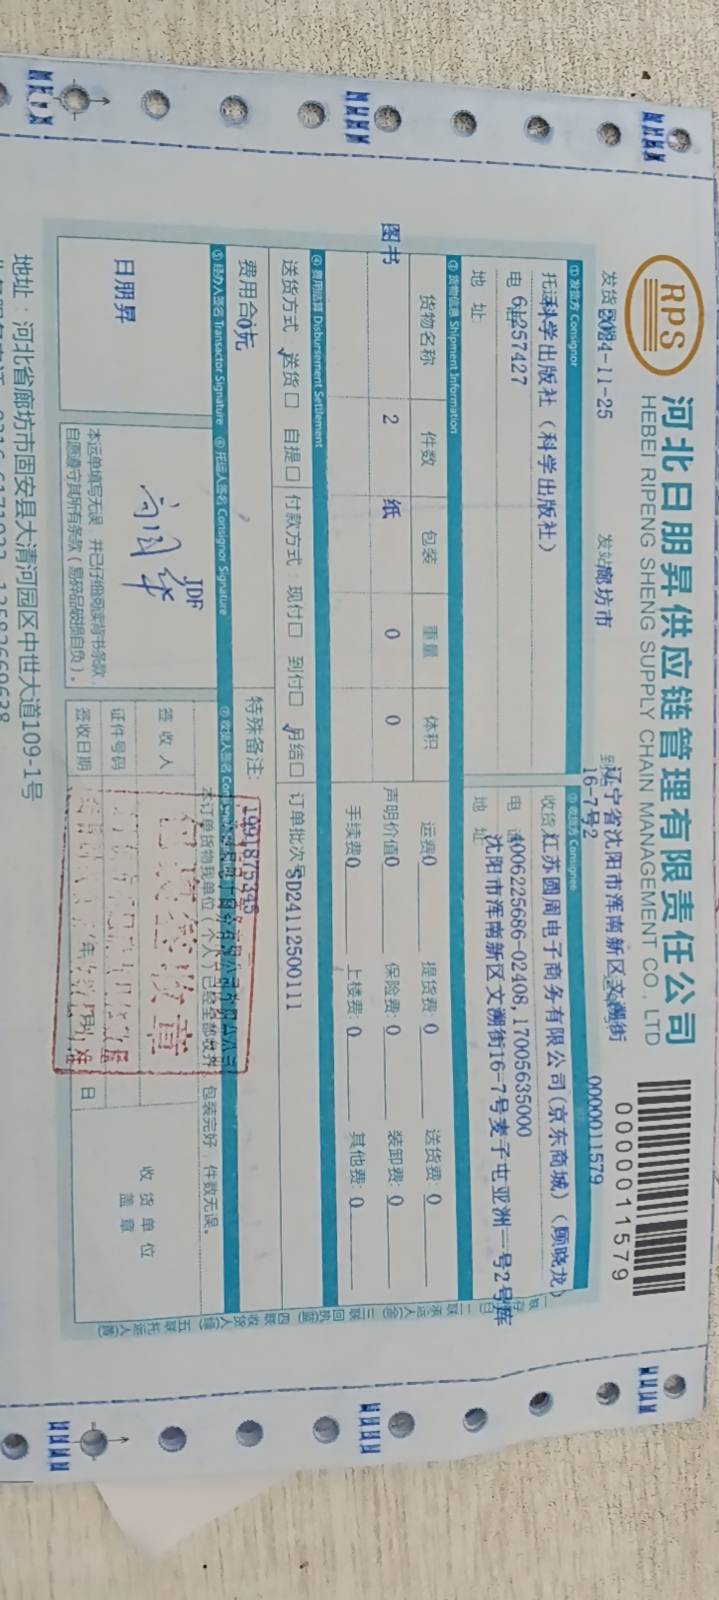 RPS
河北日朋昇供应链管理有限责任公司
HEBEI RIPENG SHENG SUPPLY CHAIN MANAGEMENT CO., LTD
0000011579
2024-11-25
发站 廊坊市
辽宁省沈阳市浑南新区文溯街
16-7号2
0000011579
① 发货方 Consignor
② 收货方 Consignee
科学出版社（科学出版社）
收货 江苏圆周电子商务有限公司(京东商城)（顾晓龙）
电 61257427
电 4006225686-02408,17005635000
地 址
地 址 沈阳市浑南新区文溯街16-7号麦子屯亚洲一号2号库
③ 货物信息 Shipment Information
货物名称 件数 包装 重量 体积
运费0 提货费: 0 送货费: 0
图书 2 纸 0 0
声明价值0 保险费: 0 装卸费: 0
手续费0 上楼费: 0 其他费: 0
④ 费用结算 Disbursement Settlement
送货方式 送货 自提 付款方式 现付 到付 月结 订单批次号 SD24112500111
费用合计0元
特殊备注: 1991875345
⑤ 经办人签名 Transactor Signature ⑥ 托运人签名 Consignor Signature
本订单货物我单位（个人）已经全部收齐 包装完好，件数无误。
日朋昇
JDF
签收人
证件号码
签收日期 年 日
收货单位
盖章
本运单填写无误，并已仔细阅读背书条款，
自愿遵守其所有条款（易碎品破损自负）。
地址：河北省廊坊市固安县大清河园区中世大道109-1号